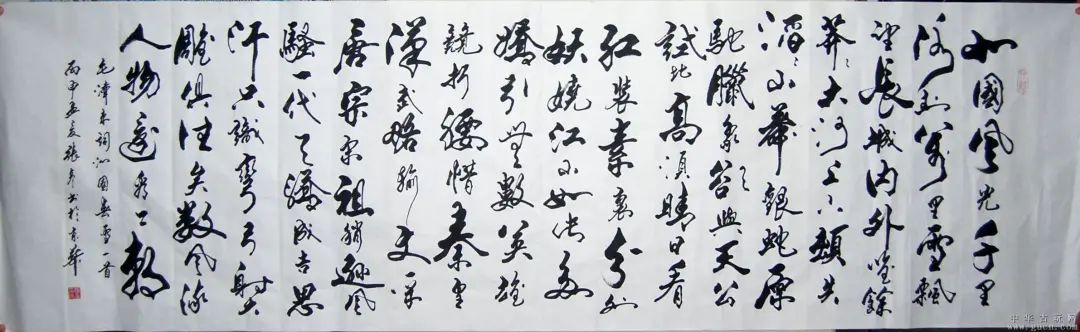 北國風光千里
冰封萬里雪飄
望長城內外惟餘
莽〻大河上下頓失
滔〻山舞銀蛇原
馳臘象欲與天公
試比高須晴日看
紅裝素裹分外
妖嬈江山如此多
嬌引無數英雄
競折腰惜秦皇
漢武略輸文采
唐宗宋祖稍遜風
騷一代天驕成吉思
汗只識彎弓射大
雕俱往矣數風流
人物還看今朝
毛澤東詞沁園春雪一首
丙申夏張書於京華
中华古玩网
www.gucn.com